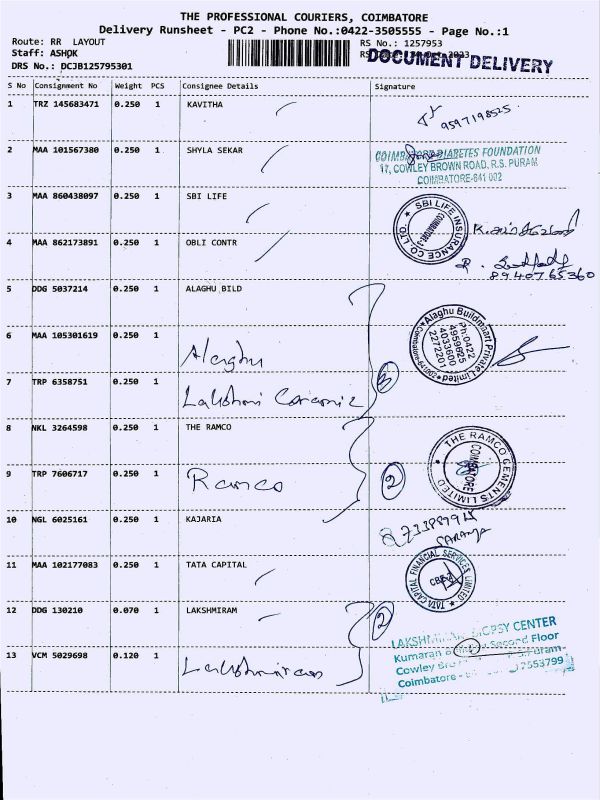 THE PROFESSIONAL COURIERS, COIMBATORE
Delivery Runsheet - PC2 - Phone No.:0422-3505555 - Page No.:1
Route: RR LAYOUT
RS No.: 1257953
Staff: ASHOK
DOCUMENT DELIVERY
DRS No.: DCJB125795301
S No Consignment No Weight PCS Consignee Details Signature
1 TRZ 145683471 0.250 1 KAVITHA
9597198525
2 MAA 101567380 0.250 1 SHYLA SEKAR
DIABETES FOUNDATION
17, COWLEY BROWN ROAD, R.S. PURAM
COIMBATORE-641 002
3 MAA 860438097 0.250 1 SBI LIFE
SBI LIFE INSURANCE CO. LTD.
COIMBATORE-3
4 MAA 862173891 0.250 1 OBLI CONTR
8940765360
5 DDG 5037214 0.250 1 ALAGHU BILD
Alaghu Buildmaart Private Limited
Ph:0422
4959625
4033600
2272201
6 MAA 105301619 0.250 1 Alaghu
7 TRP 6358751 0.250 1 Lakshmi Ceramic
3
8 NKL 3264598 0.250 1 THE RAMCO
THE RAMCO CEMENTS LIMITED
COIMBATORE
9 TRP 7606717 0.250 1 Ramco
2
10 NGL 6025161 0.250 1 KAJARIA
SARANYA
11 MAA 102177083 0.250 1 TATA CAPITAL
TATA CAPITAL FINANCIAL SERVICES LIMITED
12 DDG 130210 0.070 1 LAKSHMIRAM
2
BIOPSY CENTER
Kumaran
Second Floor
13 VCM 5029698 0.120 1 Lakshmiram
Cowley
Coimbatore -